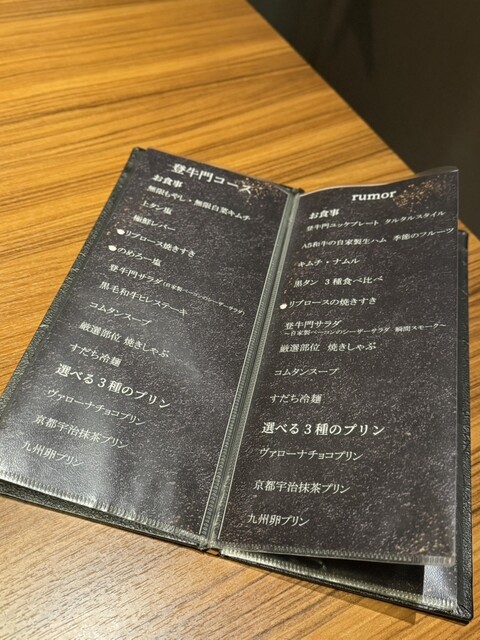 登牛門コース
お食事
無限もやし・無限白菜キムチ
上タン塩
極鮮レバー
●リブロース焼きすき
●のめろー塩
登牛門サラダ(自家製ベーコンのシーザーサラダ)
黒毛和牛ヒレステーキ
コムタンスープ
厳選部位 焼きしゃぶ
すだち冷麺
選べる3種のプリン
ヴァローナチョコプリン
京都宇治抹茶プリン
九州卵プリン
rumor
お食事
登牛門ユッケプレート タルタルスタイル
A5和牛の自家製生ハム 季節のフルーツ
キムチ・ナムル
黒タン 3種食べ比べ
●リブロースの焼きすき
登牛門サラダ
～自家製ベーコンのシーザーサラダ 瞬間スモーク～
厳選部位 焼きしゃぶ
コムタンスープ
すだち冷麺
選べる3種のプリン
ヴァローナチョコプリン
京都宇治抹茶プリン
九州卵プリン